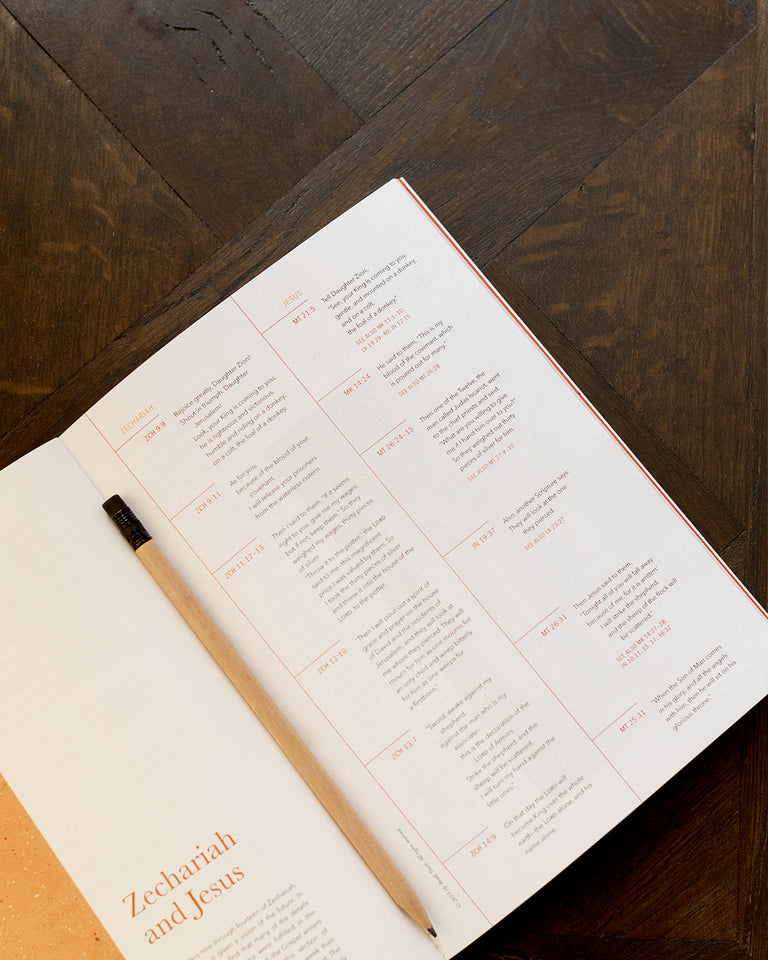 Zechariah
and Jesus
ters nine through fourteen of Zechariah,
is given a vision of the future. In
find that many of the details
were fulfilled in the
the Gospel writers
this section of
week than
The
ZECHARIAH
ZCH 9:9
Rejoice greatly, Daughter Zion!
Shout in triumph, Daughter
Jerusalem!
Look, your King is coming to you;
he is righteous and victorious,
humble and riding on a donkey,
on a colt, the foal of a donkey.
ZCH 9:11
As for you,
because of the blood of your
covenant,
I will release your prisoners
from the waterless cistern.
ZCH 11:12-13
Then I said to them, "If it seems
right to you, give me my wages;
but if not, keep them." So they
weighed my wages, thirty pieces
of silver.
"Throw it to the potter," the LORD
said to me—this magnificent
price I was valued by them. So
I took the thirty pieces of silver
and threw it into the house of the
LORD, to the potter.
ZCH 12:10
"Then I will pour out a spirit of
grace and prayer on the house
of David and the residents of
Jerusalem, and they will look at
me whom they pierced. They will
mourn for him as one mourns for
an only child and weep bitterly
for him as one weeps for
a firstborn."
ZCH 13:7
"Sword, awake against my
shepherd,
against the man who is my
associate—
this is the declaration of the
LORD of Armies.
Strike the shepherd, and the
sheep will be scattered;
I will turn my hand against the
little ones."
ZCH 14:9
On that day the LORD will
become King over the whole
earth—the LORD alone, and his
name alone.
JESUS
MT 21:5
Tell Daughter Zion,
"See, your King is coming to you,
gentle, and mounted on a donkey,
and on a colt,
the foal of a donkey."
SEE ALSO MK 11:1-10;
LK 19:29-40; JN 12:15
MK 14:24
He said to them, "This is my
blood of the covenant, which
is poured out for many."
SEE ALSO MT 26:28
MT 26:24-15
Then one of the Twelve, the
man called Judas Iscariot, went
to the chief priests and said,
"What are you willing to give
me if I hand him over to you?"
So they weighed out thirty
pieces of silver for him.
SEE ALSO MT 27:9-10
JN 19:37
Also, another Scripture says:
They will look at the one
they pierced.
SEE ALSO LK 23:27
MT 26:31
Then Jesus said to them,
"Tonight all of you will fall away
because of me, for it is written:
I will strike the shepherd,
and the sheep of the flock will
be scattered."
SEE ALSO MK 14:27-28;
JN 10:11, 15, 17; 16:32
MT 25:31
"When the Son of Man comes
in his glory, and all the angels
with him, then he will sit on his
glorious throne."
All rights reserved.